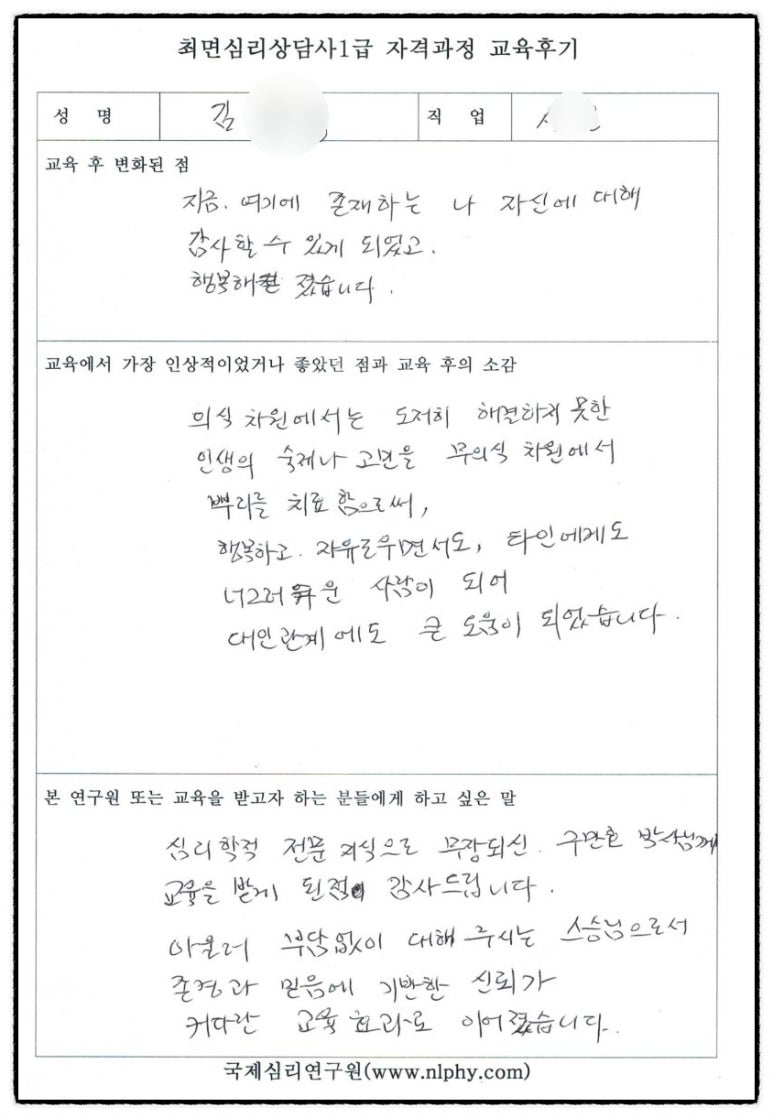 최면심리상담사1급 자격과정 교육후기
성 명 김 직 업
교육 후 변화된 점
지금. 여기에 존재하는 나 자신에 대해
감사할 수 있게 되었고.
행복해 졌습니다.
교육에서 가장 인상적이었거나 좋았던 점과 교육 후의 소감
의식 차원에서는 도저히 해결하지 못한
인생의 숙제나 고민을 무의식 차원에서
뿌리를 치료 함으로써,
행복하고. 자유로우면서도, 타인에게도
너그러운 사람이 되어
대인관계에도 큰 도움이 되었습니다.
본 연구원 또는 교육을 받고자 하는 분들에게 하고 싶은 말
심리학적 전문 지식으로 무장되신. 구만호 박사님께
교육을 받게 된점 감사드립니다.
아울러 부담없이 대해 주시는 스승님으로서
존경과 믿음에 기반한 신뢰가
커다란 교육 효과로 이어졌습니다.
국제심리연구원(www.nlphy.com)